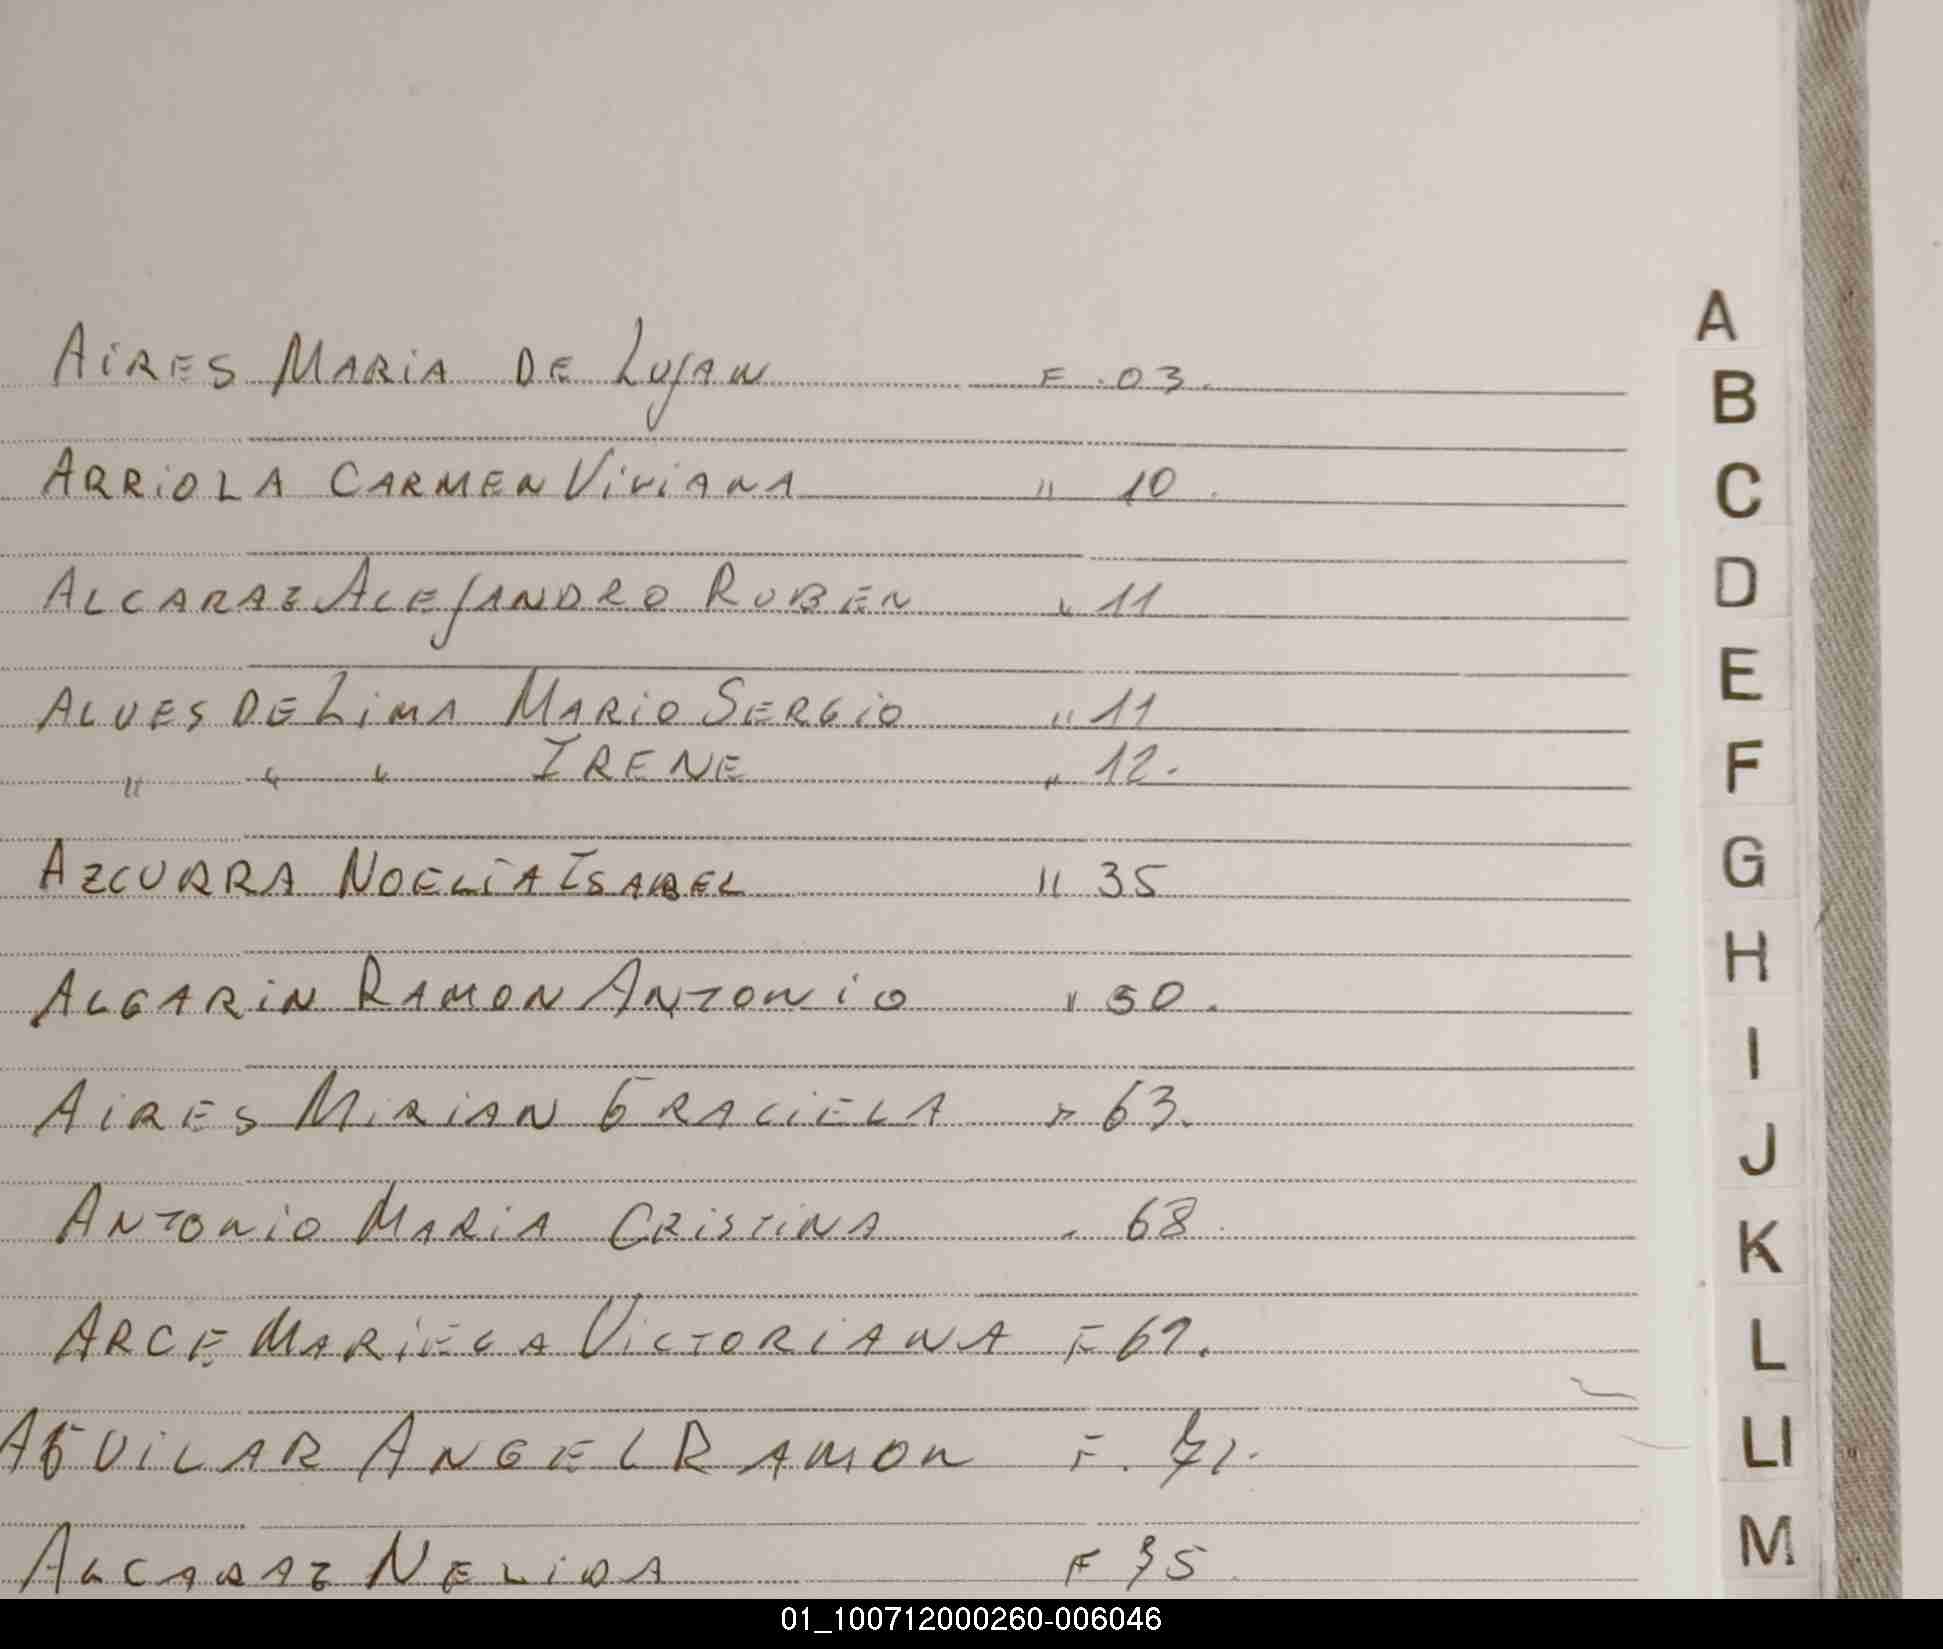 AIRES MARIA DE LUJAN F. 03.
ARRIOLA CARMEN VIVIANA " 10.
ALCARAZ ALEJANDRO RUBEN " 11
ALVES DE LIMA MARIO SERGIO " 11
" " " IRENE " 12.
AZCURRA NOELIA ISABEL " 35
ALGARIN RAMON ANTONIO " 50.
AIRES MIRIAN GRACIELA " 63.
ANTONIO MARIA CRISTINA " 68.
ARCE MARIELA VICTORIANA F 69.
AGUILAR ANGEL RAMON F. 71.
ALCARAZ NELIDA F 75
A
B
C
D
E
F
G
H
I
J
K
L
Ll
M
01_100712000260-006046